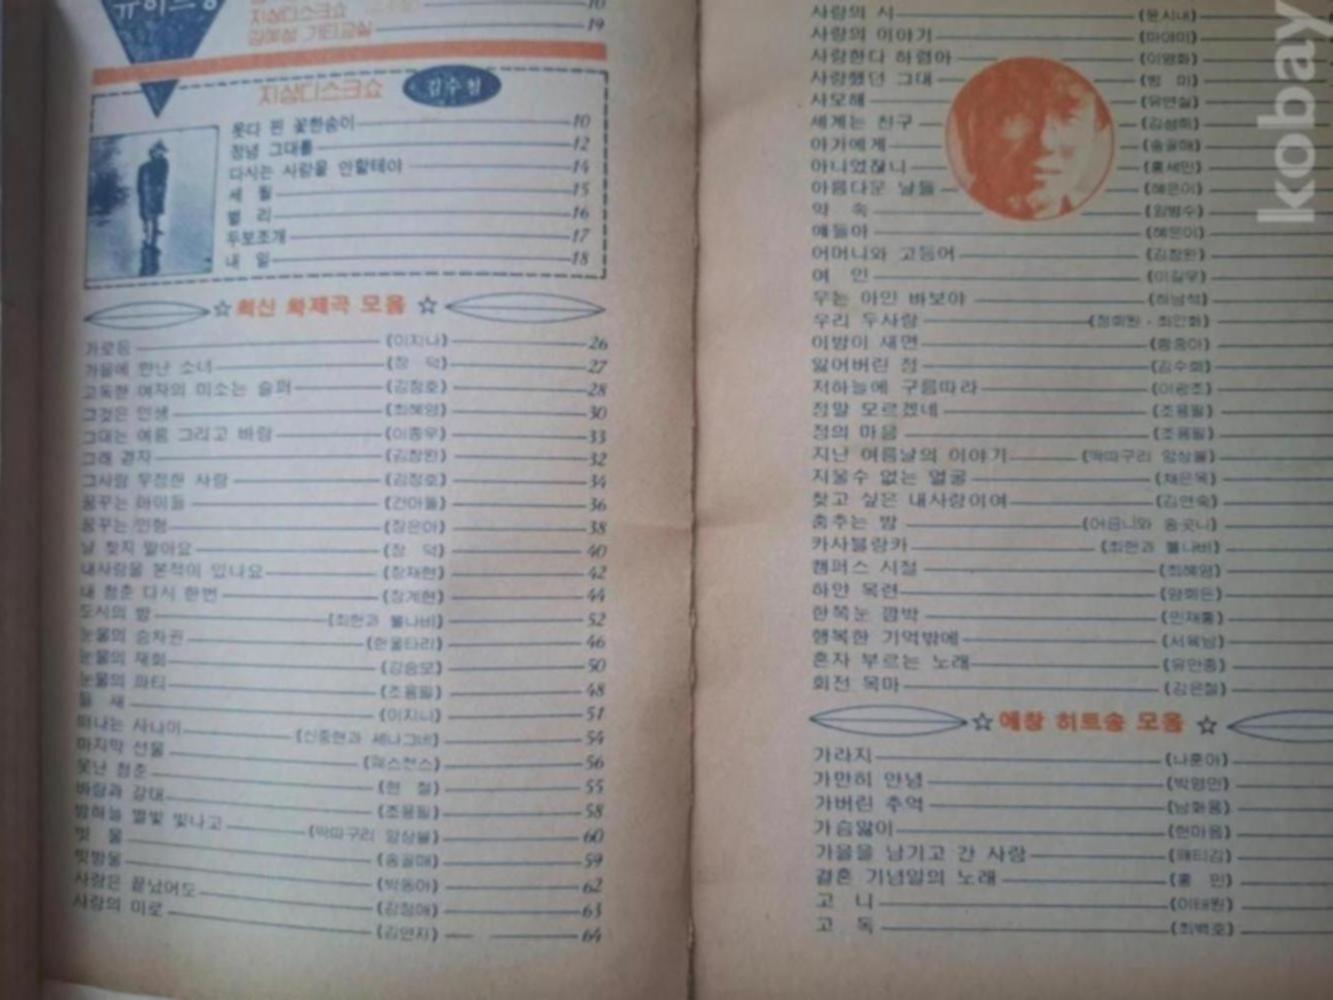 뮤이스
지상디스크쇼 10
김여성 기타교실 19
지상디스크쇼 김수철
못다 핀 꽃한송이 10
정녕 그대를 12
다시는 사랑을 안할테야 14
세 월 15
별 리 16
두보조개 17
내 일 18
☆ 최신 화제곡 모음 ☆
가로등 (이지나) 26
가을에 만난 소녀 (장 덕) 27
고독한 여자의 미소는 슬퍼 (김정호) 28
그것은 인생 (최혜영) 30
그대는 여름 그리고 바람 (이종우) 33
그래 걷자 (김창완) 32
그사람 무정한 사람 (김정호) 34
꿈꾸는 아이들 (건아들) 36
꿈꾸는 인형 (장은아) 38
날 찾지 말아요 (장 덕) 40
내사랑을 본적이 있나요 (장재현) 42
내 청춘 다시 한번 (장계현) 44
도시의 밤 (최헌과 불나비) 52
눈물의 승차권 (한울타리) 46
눈물의 재회 (김승모) 50
눈물의 파티 (조용필) 48
들 새 (이지나) 51
떠나는 사나이 (신중현과 세나그네) 54
마지막 선물 (패스챤스) 56
못난 청춘 (현 철) 55
바람과 갈대 (조용필) 58
밤하늘 별빛 빛나고 (딱따구리 앙상블) 60
빗 물 (송골매) 59
빗방울 (박동아) 62
사랑은 끝났어도 (김청애) 63
사랑의 미로 (김연자) 64
사랑의 시 (윤시내)
사랑의 이야기 (마야미)
사랑한다 하렴아 (이영화)
사랑했던 그대 (방 미)
사모해 (유연실)
세계는 친구 (김성희)
아가에게 (송골매)
아니었잖니 (홍세민)
아름다운 날들 (혜은이)
약 속 (임병수)
얘들아 (혜은이)
어머니와 고등어 (김창완)
여 인 (이길우)
우는 아인 바보야 (하남석)
우리 두사람 (정희원·최인화)
이밤이 새면 (황충아)
잃어버린 정 (김수희)
저하늘에 구름따라 (이광조)
정말 모르겠네 (조용필)
정의 마음 (조용필)
지난 여름날의 이야기 (딱따구리 앙상블)
지울수 없는 얼굴 (채은옥)
찾고 싶은 내사랑이여 (김연숙)
춤추는 밤 (어금니와 송곳니)
카사블랑카 (최헌과 불나비)
캠퍼스 시절 (최혜영)
하얀 목련 (양희은)
한쪽눈 깜박 (민재홍)
행복한 기억밖에 (서옥남)
혼자 부르는 노래 (유만종)
회전 목마 (김은철)
☆ 애창 히트송 모음 ☆
가라지 (나훈아)
가만히 안녕 (박영민)
가버린 추억 (남화용)
가슴앓이 (한마음)
가을을 남기고 간 사랑 (패티김)
결혼 기념일의 노래 (홍 민)
고 니 (이태원)
고 독 (최백호)
kobay